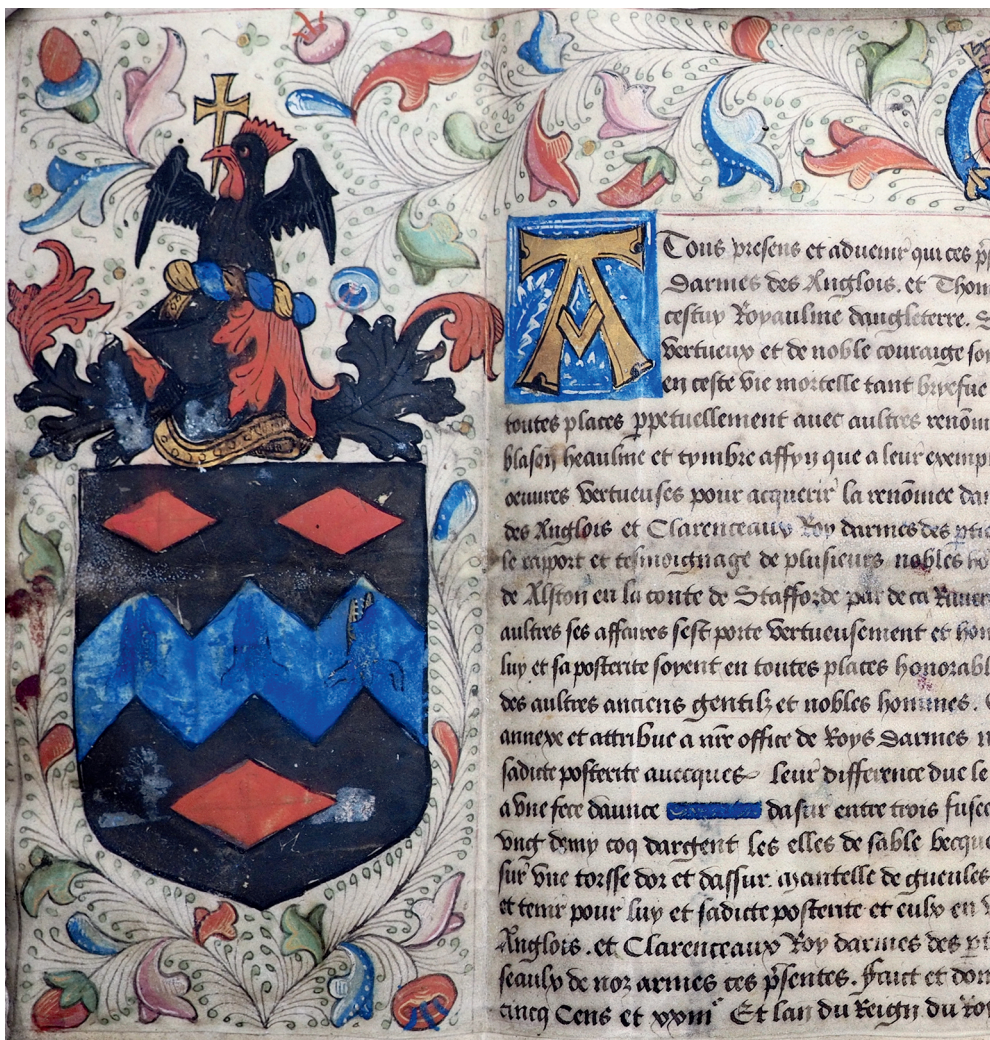 A Tous presens et advenir qui ces
darmes des Anglois. et Thom
cestuy Royaulme dangleterre. S
vertueux et de noble couraige so
en ceste vie mortelle tant bryefue
toutes places ꝑpetuellement avec aultres renōm
blason heaulme et tymbre affyn que a leur exempl
oeuures vertueuses pour acquerir la renōmee da
des Anglois et Clarenceaux Roy darmes des
le raport et tesmoignage de plusieurs nobles ho
de Alston en la conte de Stafforde par de ca
aultres ses affaires sest porte vertueusement et hon
luy et sa posterite soyent en toutes places honorabl
des aultres anciens gentilz et nobles hommes.
annexe et attribue a nr̄e office de Roys darmes
sadicte posterite auecques leur difference due le
a vne fece daunce dasur entre trois fusee
vng demy coq dargent les elles de sable becque
sur vne torsse dor et dassur. mantelle de gueules
et tenir pour luy et sadicte posterite et eulx en
Anglois. et Clarenceaux Roy darmes des
seaulx de noz armes ces p̄sentes. fait et don
cincq Cens et xxiii Et lan du Reign du Roy